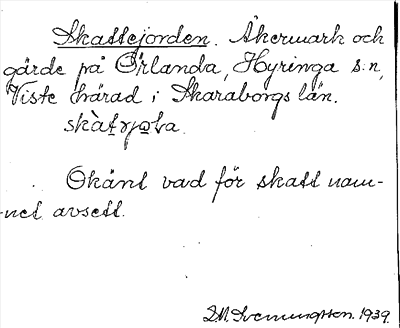 Skattejorden. Åkermark och
gärde på Örlanda, Hyringa s:n,
Viste härad i Skaraborgs län.
Okänt vad för skatt nam-
net avsett.
1939.